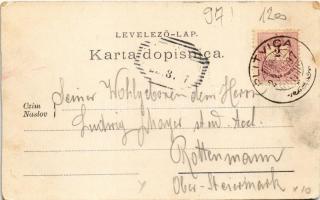 97! 1200
LEVELEZŐ-LAP.
Karta dopisnica.
PLITVICA
3
Czim
Naslov
Seiner Wohlgeboren dem Herrn
Ludwig Mayer stud.
Rottenmann
Ober-Steiermark